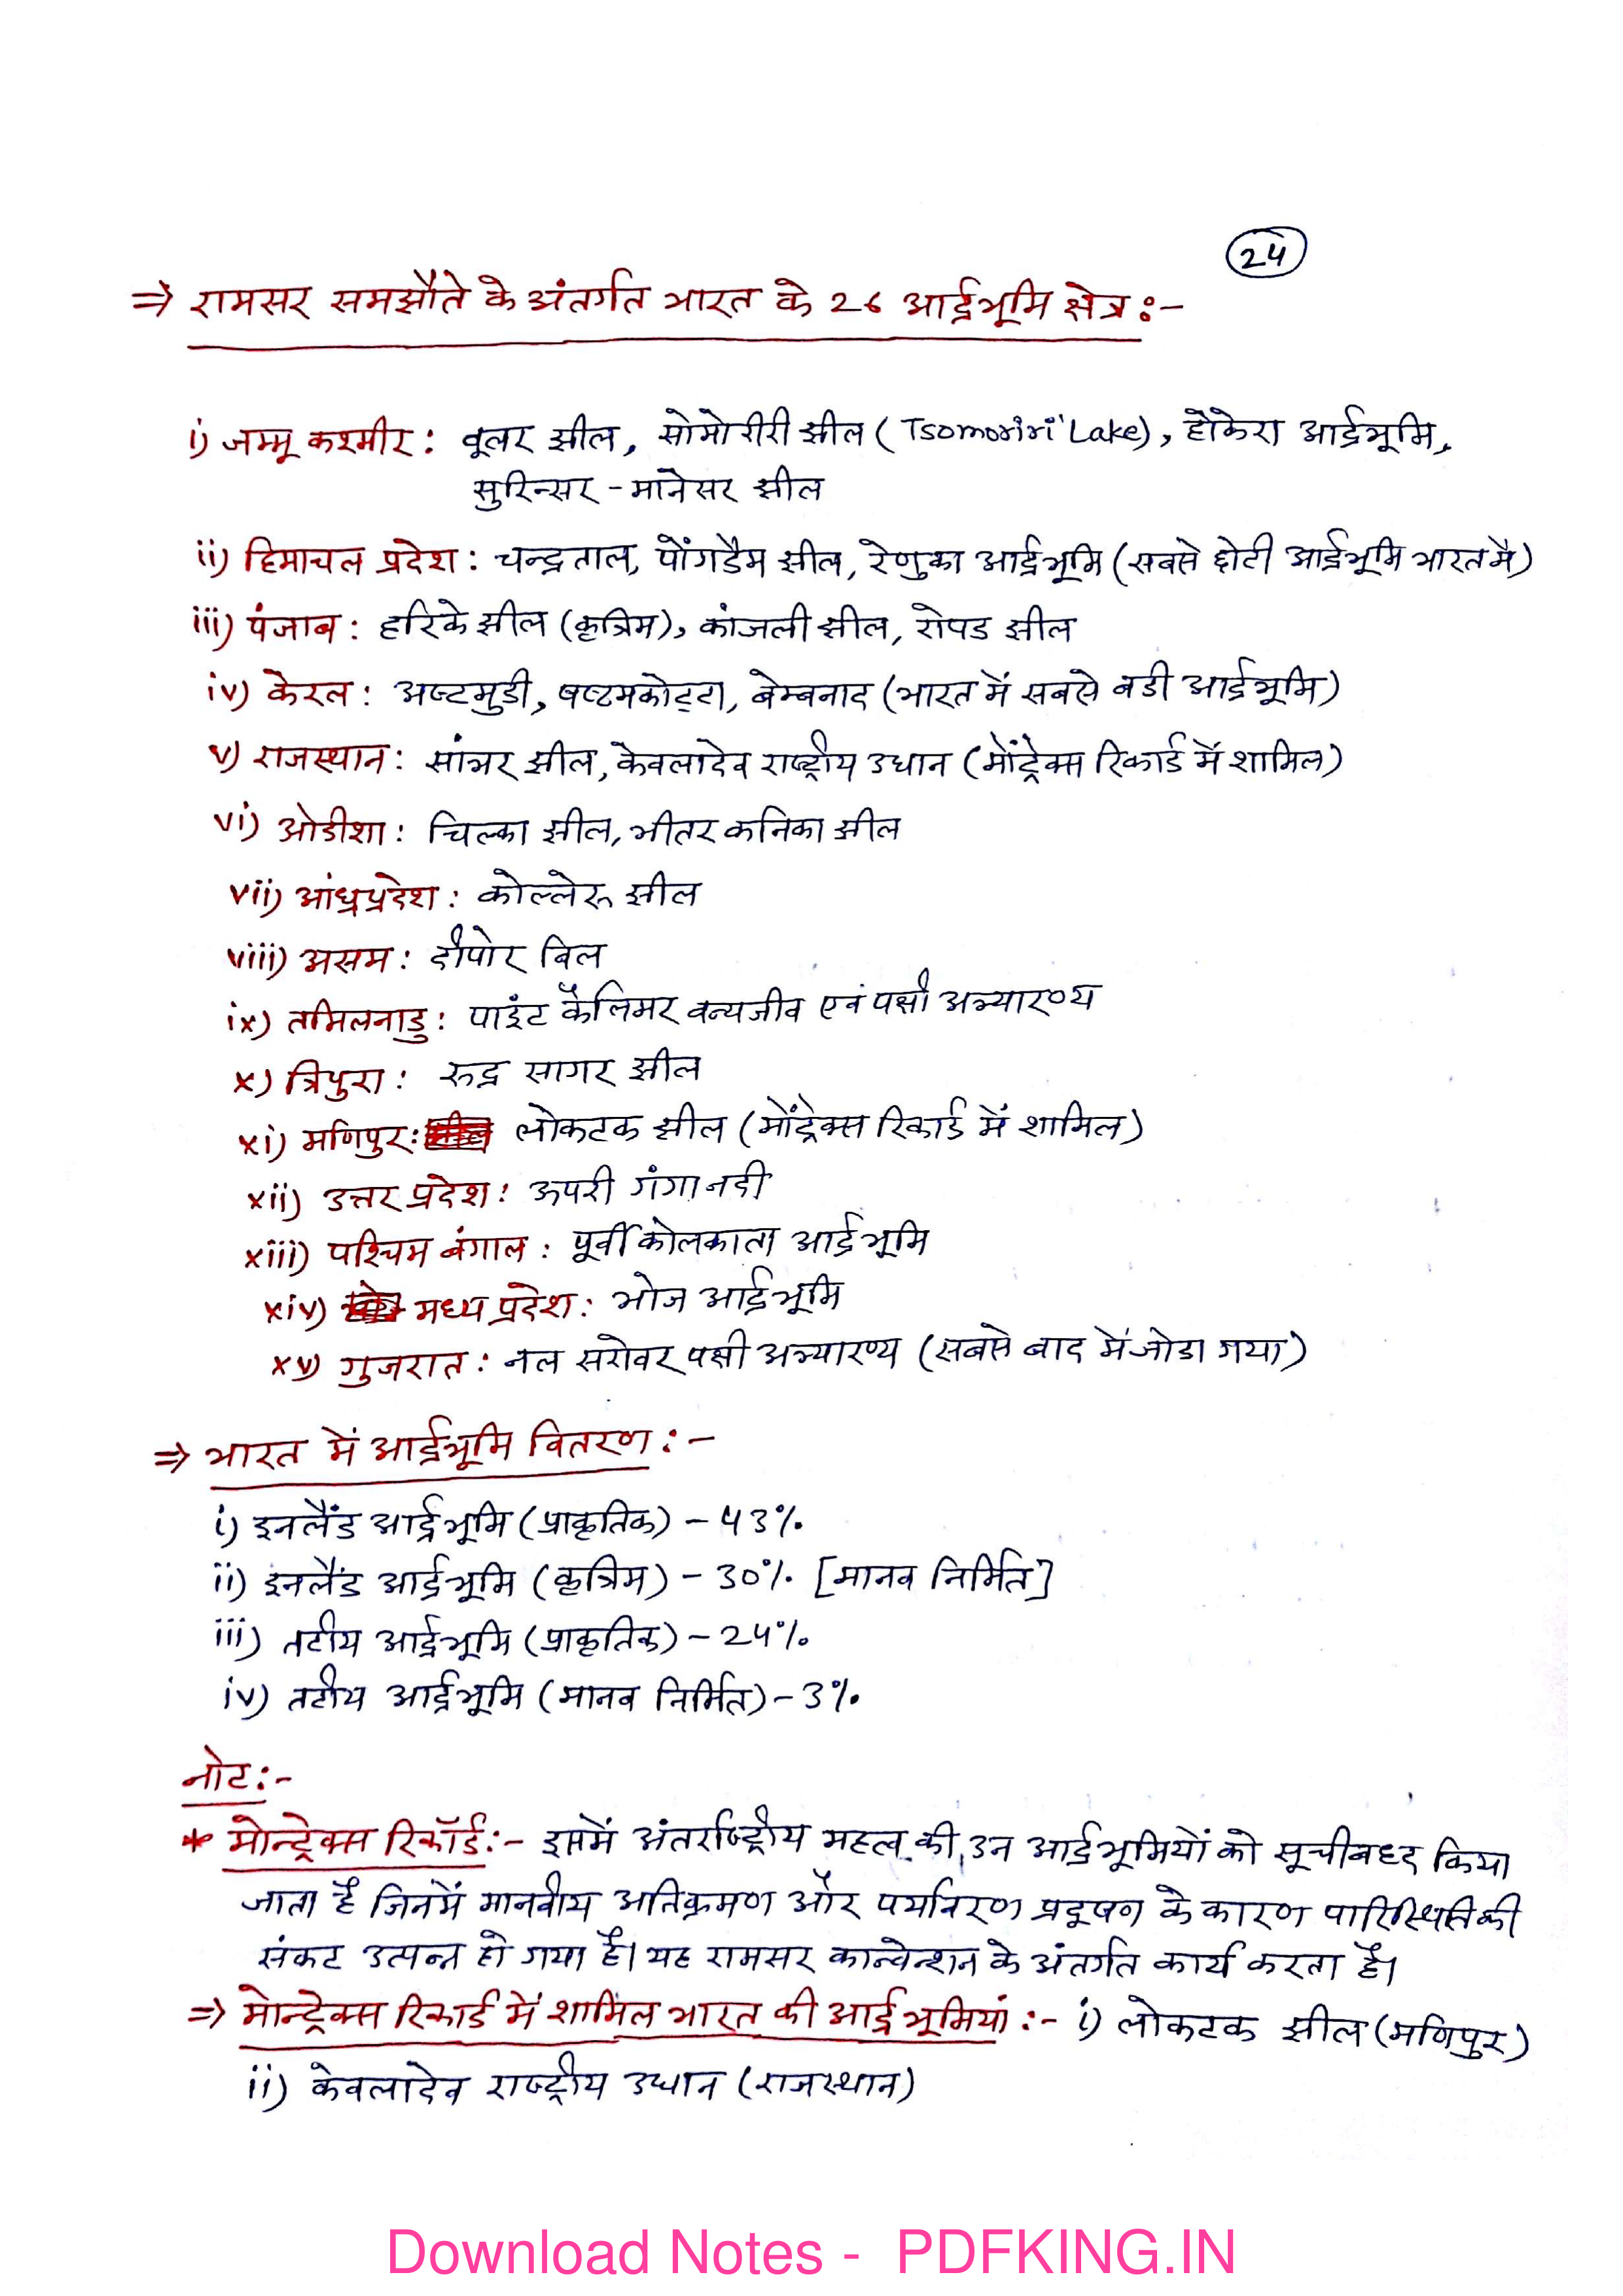 24
⇒ रामसर समझौते के अंतर्गत भारत के 26 आर्द्रभूमि क्षेत्र :-
i) जम्मू कश्मीर : वूलर झील, सोमोरीरी झील ( Tsomoriri Lake), होकेरा आर्द्रभूमि,
सुरिन्सर - मानेसर झील
ii) हिमाचल प्रदेश : चन्द्रताल, पोंगडैम झील, रेणुका आर्द्रभूमि (सबसे छोटी आर्द्रभूमि भारत मे)
iii) पंजाब : हरिके झील (कृत्रिम), कांजली झील, रोपड झील
iv) केरल : अष्टमुडी, षष्टमकोट्टा, बेम्बनाद (भारत में सबसे बडी आर्द्रभूमि)
v) राजस्थान : सांभर झील, केवलादेव राष्ट्रीय उधान (मोंट्रेक्स रिकार्ड में शामिल)
vi) ओडीशा : चिल्का झील, भीतर कनिका झील
vii) आंध्रप्रदेश : कोल्लेरू झील
viii) असम : दीपोर बिल
ix) तमिलनाडु : पाइंट कैलिमर वन्यजीव एवं पक्षी अभ्यारण्य
x) त्रिपुरा : रूद्र सागर झील
xi) मणिपुर : लोकटक झील (मोंट्रेक्स रिकार्ड में शामिल)
xii) उत्तर प्रदेश : ऊपरी गंगा नदी
xiii) पश्चिम बंगाल : पूर्वी कोलकाता आर्द्रभूमि
xiv) मध्य प्रदेश : भोज आर्द्रभूमि
xv) गुजरात : नल सरोवर पक्षी अभ्यारण्य (सबसे बाद में जोडा गया)
⇒ भारत में आर्द्रभूमि वितरण :-
i) इनलैंड आर्द्रभूमि (प्राकृतिक) - 43%
ii) इनलैंड आर्द्रभूमि (कृत्रिम) - 30% [मानव निर्मित]
iii) तटीय आर्द्रभूमि (प्राकृतिक) - 24%
iv) तटीय आर्द्रभूमि (मानव निर्मित) - 3%
नोट :-
* मोन्ट्रेक्स रिकॉर्ड :- इसमें अंतर्राष्ट्रीय महत्व की उन आर्द्रभूमियों को सूचीबध्द किया
जाता है जिनमें मानवीय अतिक्रमण और पर्यावरण प्रदूषण के कारण पारिस्थितिकी
संकट उत्पन्न हो गया है। यह रामसर कान्वेन्शन के अंतर्गत कार्य करता है।
⇒ मोन्ट्रेक्स रिकार्ड में शामिल भारत की आर्द्रभूमियां :- i) लोकटक झील (मणिपुर)
ii) केवलादेव राष्ट्रीय उधान (राजस्थान)
Download Notes - PDFKING.IN